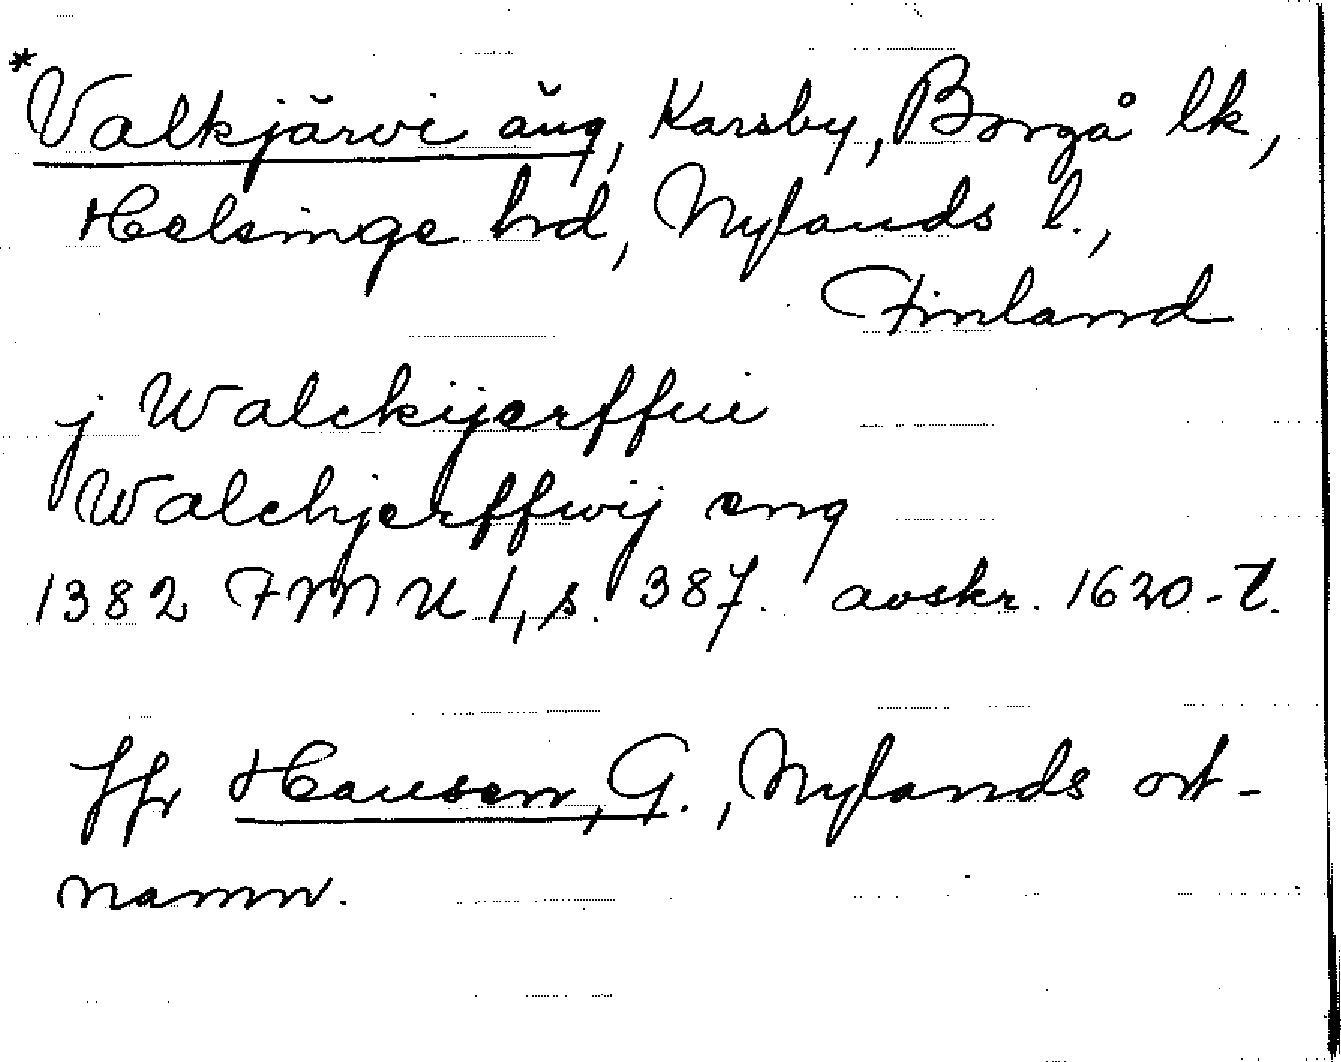 *Valkjärvi äng, Karsby, Borgå lk,
Helsinge hrd, Nylands l.,
Finland
j Walckijerffui
Walchjerffwij eng
1382 FMU 1, s. 387. avskr. 1620-t.
Jfr Hausen, G., Nylands ort-
namn.